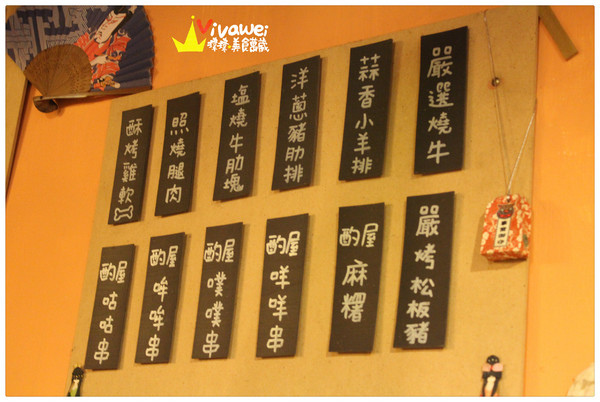 Vivawei
瑋瑋*美食萬歲
嚴選燒牛
蒜香小羊排
洋蔥豬肋排
塩燒牛肋塊
照燒腿肉
酥烤雞軟
嚴烤松板豬
酌屋麻糬
酌屋咩咩串
酌屋噗噗串
酌屋哞哞串
酌屋咕咕串